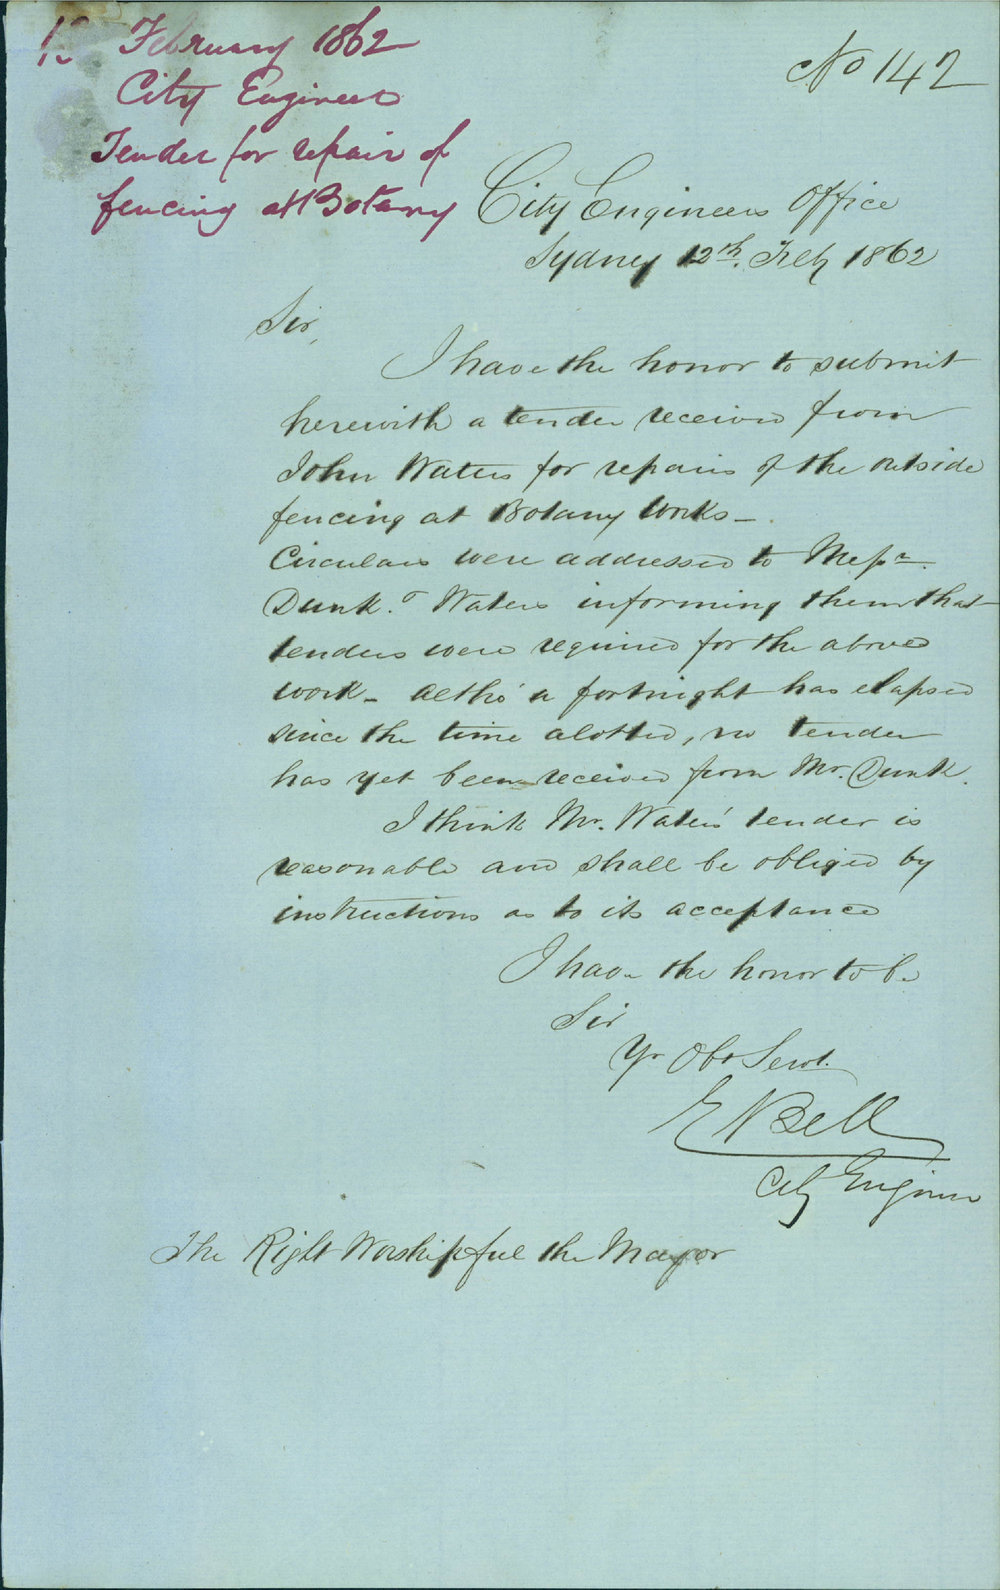 February 1862
City Engineer
Tender for repair of
fencing at Botany
No 142
City Engineers Office
Sydney 12th. Feby 1862
Sir,
I have the honor to submit
herewith a tender received from
John Waters for repairs of the outside
fencing at Botany Works_
Circulars were addressed to Messrs.
Dunk & Waters informing them that
tenders were required for the above
work_ Altho' a fortnight has elapsed
since the time alotted, no tender
has yet been received from Mr. Dunk.
I think Mr. Waters' tender is
reasonable and shall be obliged by
instructions as to its acceptance
I have the honor to be
Sir
Yr Obt Servt.
E Bell
City Engineer
The Right Worshipful the Mayor